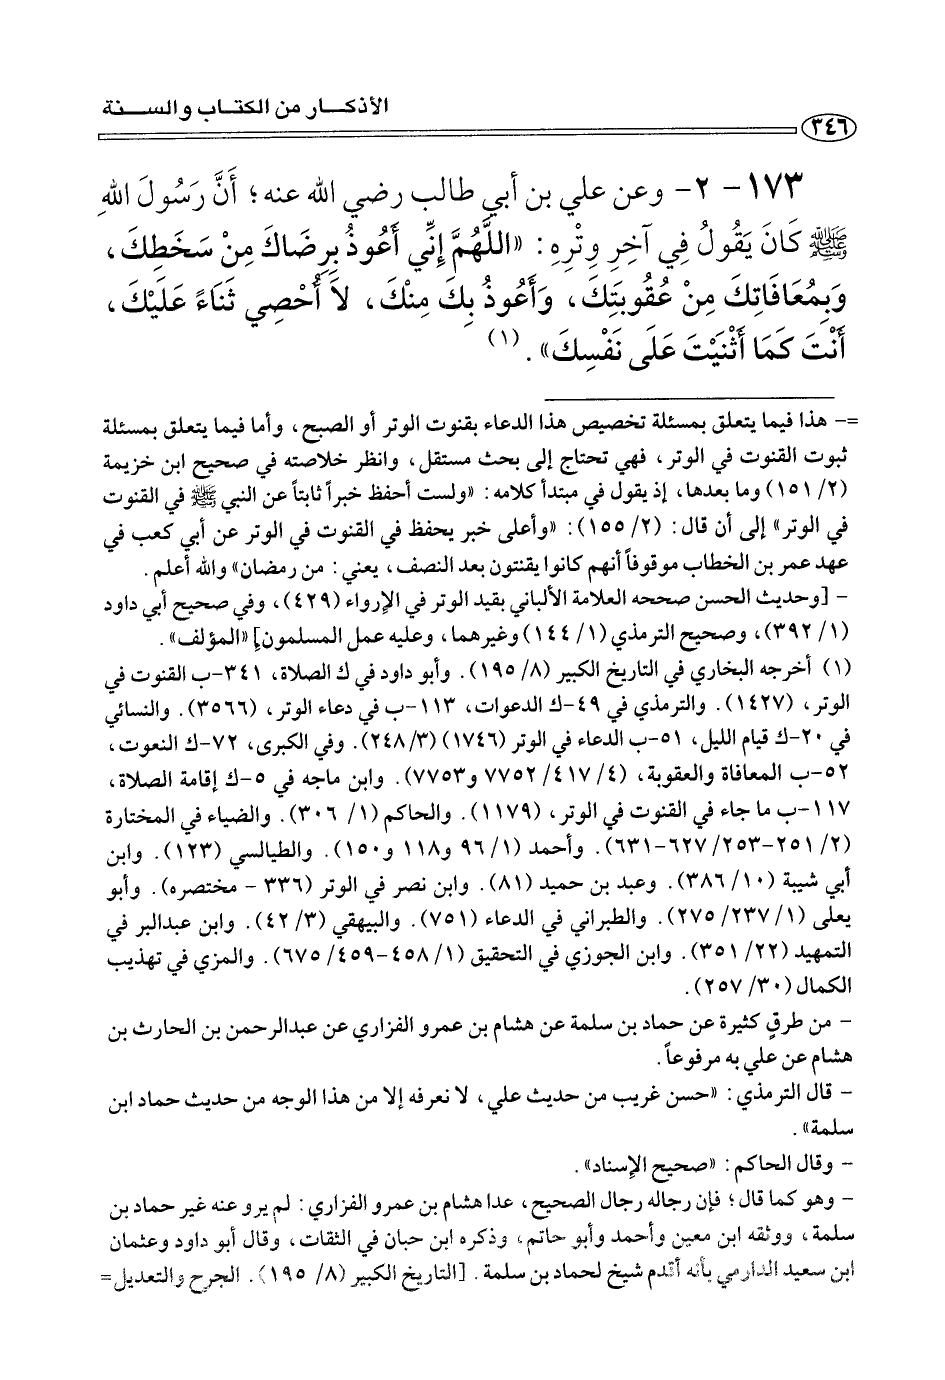 الأذكـــار من الكتـاب والســـنة
٣٤٦
١٧٣- ٢- وعن علي بن أبي طالب رضي الله عنه؛ أَنَّ رَسُولَ اللهِ
ﷺ كَانَ يَقُولُ فِي آخِرِ وِتْرِهِ: «اللَّهُمَّ إِنِّي أَعُوذُ بِرِضَاكَ مِنْ سَخَطِكَ،
وَبِمُعَافَاتِكَ مِنْ عُقُوبَتِكَ، وَأَعُوذُ بِكَ مِنْكَ، لاَ أُحْصِي ثَنَاءً عَلَيْكَ،
أَنْتَ كَمَا أَثْنَيْتَ عَلَى نَفْسِكَ». (١)
=- هذا فيما يتعلق بمسئلة تخصيص هذا الدعاء بقنوت الوتر أو الصبح، وأما فيما يتعلق بمسئلة
ثبوت القنوت في الوتر، فهي تحتاج إلى بحث مستقل، وانظر خلاصته في صحيح ابن خزيمة
(٢/ ١٥١) وما بعدها، إذ يقول في مبتدأ كلامه: «ولست أحفظ خبراً ثابتاً عن النبي ﷺ في القنوت
في الوتر» إلى أن قال: (٢/ ١٥٥): «وأعلى خبر يحفظ في القنوت في الوتر عن أبي كعب في
عهد عمر بن الخطاب موقوفاً أنهم كانوا يقنتون بعد النصف، يعني: من رمضان» والله أعلم.
- [وحديث الحسن صححه العلامة الألباني بقيد الوتر في الإرواء (٤٢٩)، وفي صحيح أبي داود
(١/ ٣٩٢)، وصحيح الترمذي (١/ ١٤٤) وغيرهما، وعليه عمل المسلمون] «المؤلف».
(١) أخرجه البخاري في التاريخ الكبير (٨/ ١٩٥). وأبو داود في ك الصلاة، ٣٤١-ب القنوت في
الوتر، (١٤٢٧). والترمذي في ٤٩-ك الدعوات، ١١٣-ب في دعاء الوتر، (٣٥٦٦). والنسائي
في ٢٠-ك قيام الليل، ٥١-ب الدعاء في الوتر (١٧٤٦) (٣/ ٢٤٨). وفي الكبرى، ٧٢-ك النعوت،
٥٢-ب المعافاة والعقوبة، (٤/ ٤١٧/ ٧٧٥٢ و٧٧٥٣). وابن ماجه في ٥-ك إقامة الصلاة،
١١٧-ب ما جاء في القنوت في الوتر، (١١٧٩). والحاكم (١/ ٣٠٦). والضياء في المختارة
(٢/ ٢٥١-٢٥٣/ ٦٢٧-٦٣١). وأحمد (١/ ٩٦ و١١٨ و١٥٠). والطيالسي (١٢٣). وابن
أبي شيبة (١٠/ ٣٨٦). وعبد بن حميد (٨١). وابن نصر في الوتر (٣٣٦ - مختصره). وأبو
يعلى (١/ ٢٣٧/ ٢٧٥). والطبراني في الدعاء (٧٥١). والبيهقي (٣/ ٤٢). وابن عبدالبر في
التمهيد (٢٢/ ٣٥١). وابن الجوزي في التحقيق (١/ ٤٥٨-٤٥٩/ ٦٧٥). والمزي في تهذيب
الكمال (٣٠/ ٢٥٧).
- من طرقٍ كثيرة عن حماد بن سلمة عن هشام بن عمرو الفزاري عن عبدالرحمن بن الحارث بن
هشام عن علي به مرفوعاً.
- قال الترمذي: «حسن غريب من حديث علي، لا نعرفه إلا من هذا الوجه من حديث حماد ابن
سلمة».
- وقال الحاكم: «صحيح الإسناد».
- وهو كما قال؛ فإن رجاله رجال الصحيح، عدا هشام بن عمرو الفزاري: لم يرو عنه غير حماد بن
سلمة، ووثقه ابن معين وأحمد وأبو حاتم، وذكره ابن حبان في الثقات، وقال أبو داود وعثمان
ابن سعيد الدارمي بأنه أقدم شيخ لحماد بن سلمة. [التاريخ الكبير (٨/ ١٩٥). الجرح والتعديل=